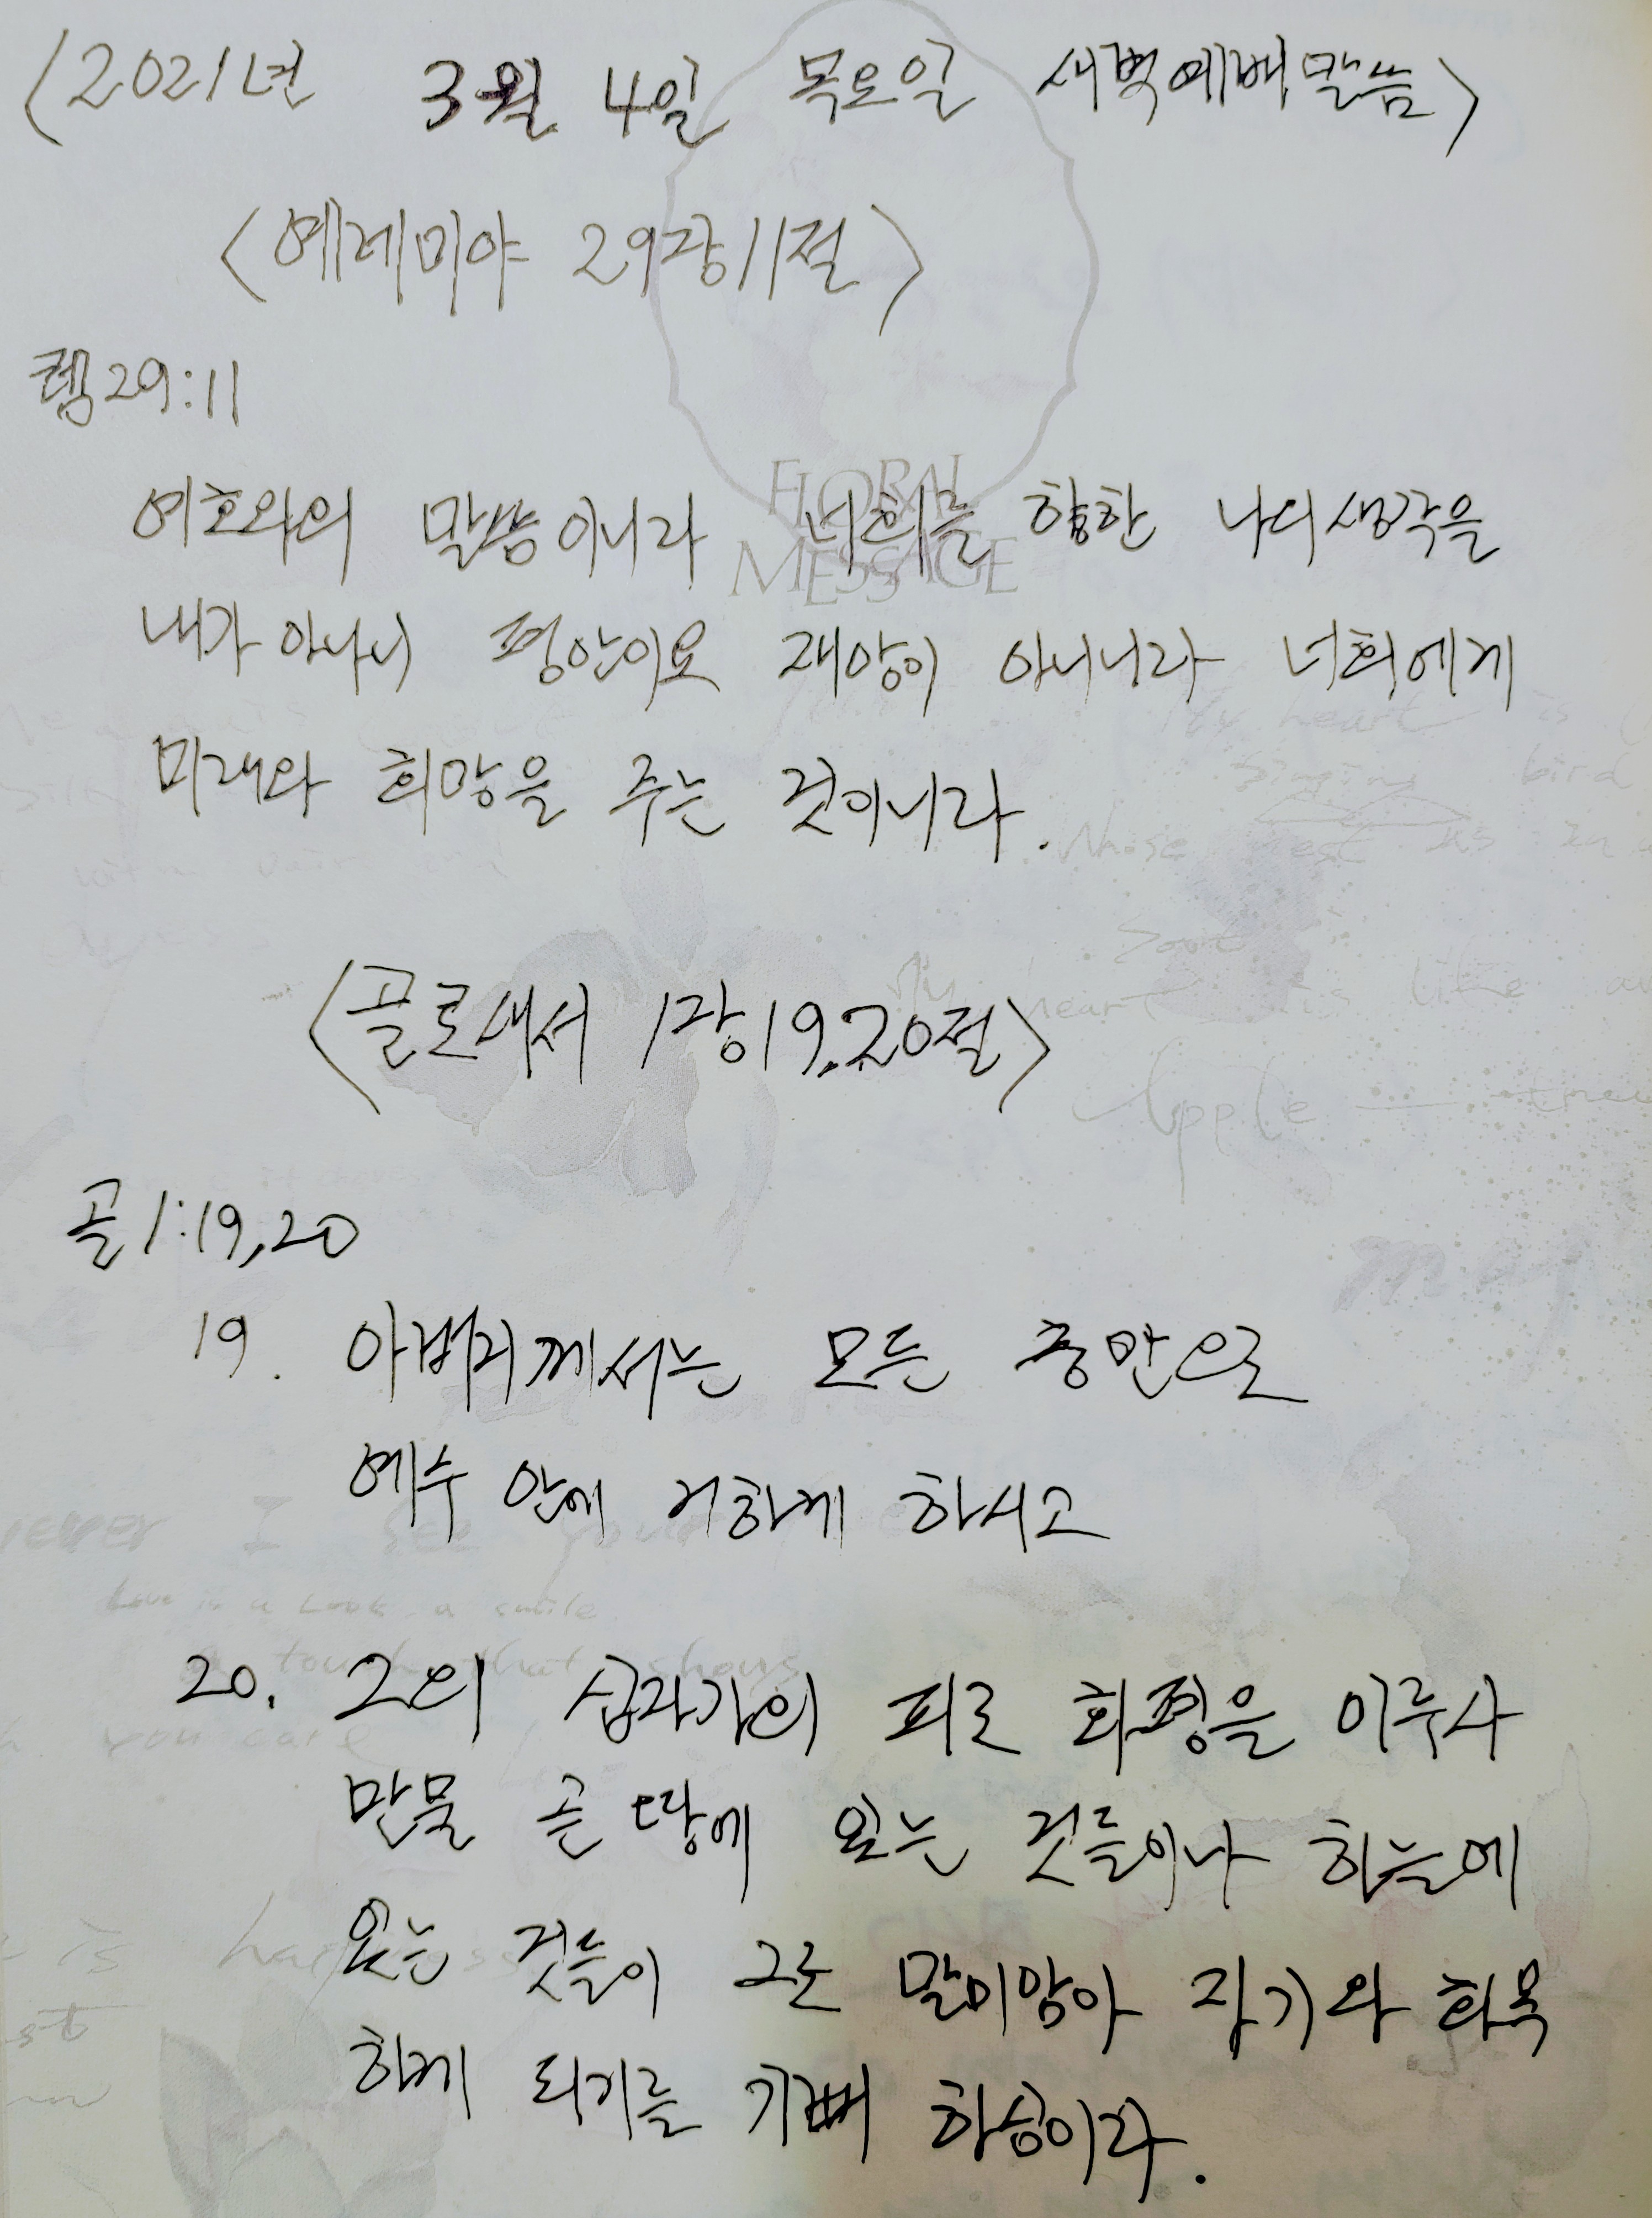 <2021년 3월 4일 목요일 새벽예배말씀>
<예레미야 29장11절>
렘29:11
FLORAL
MESSAGE
여호와의 말씀이니라 너희를 향한 나의생각을
내가 아나니 평안이요 재앙이 아니니라 너희에게
미래와 희망을 주는 것이니라.
<골로새서 1장19,20절>
골1:19,20
19. 아버지께서는 모든 충만으로
예수 안에 거하게 하시고
20. 그의 십자가의 피로 화평을 이루사
만물 곧 땅에 있는 것들이나 하늘에
있는 것들이 그로 말미암아 자기와 화목
하게 되기를 기뻐 하심이라.